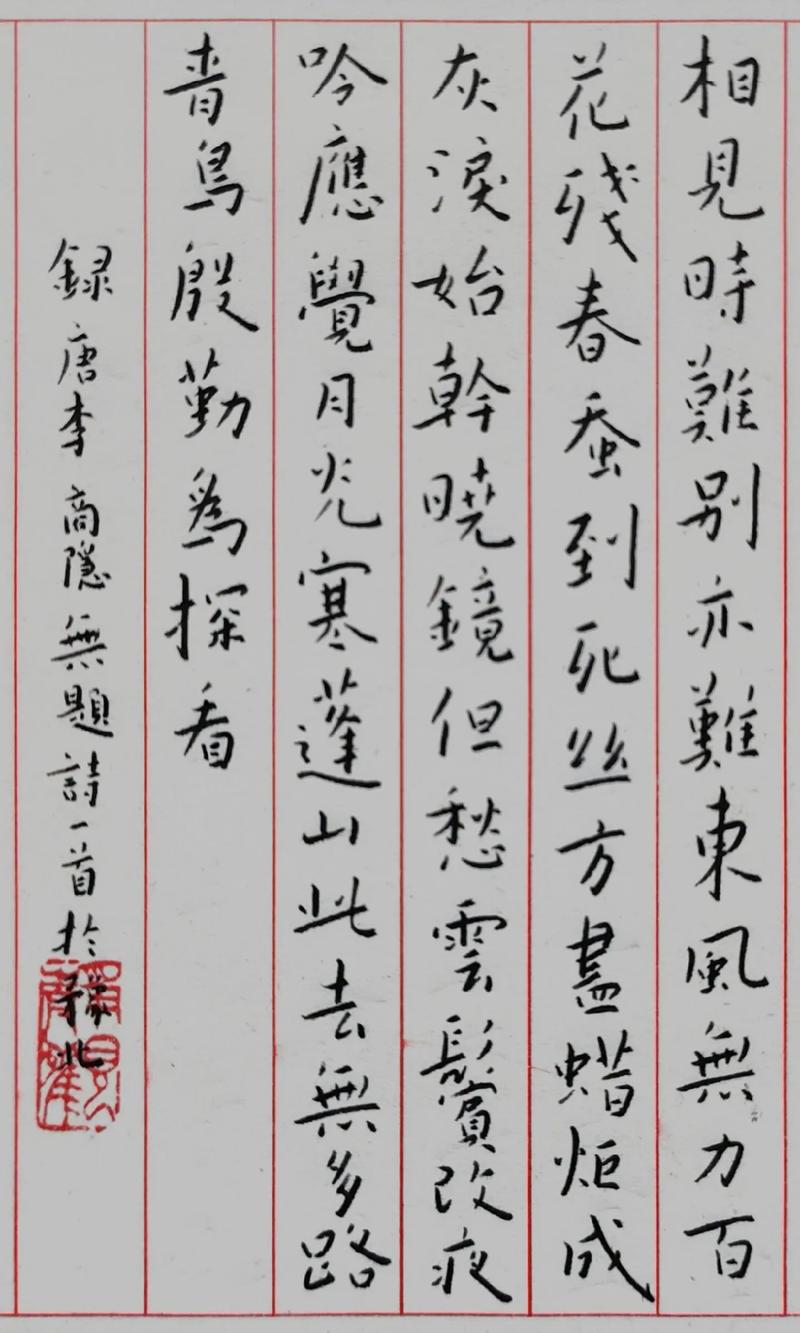 相見時難別亦難東風無力百
花殘春蚕到死丝方盡蜡炬成
灰淚始幹曉鏡但愁雲鬢改夜
吟應覺月光寒蓬山此去無多路
青鳥殷勤為探看
録唐李商隱無題詩一首於豫北